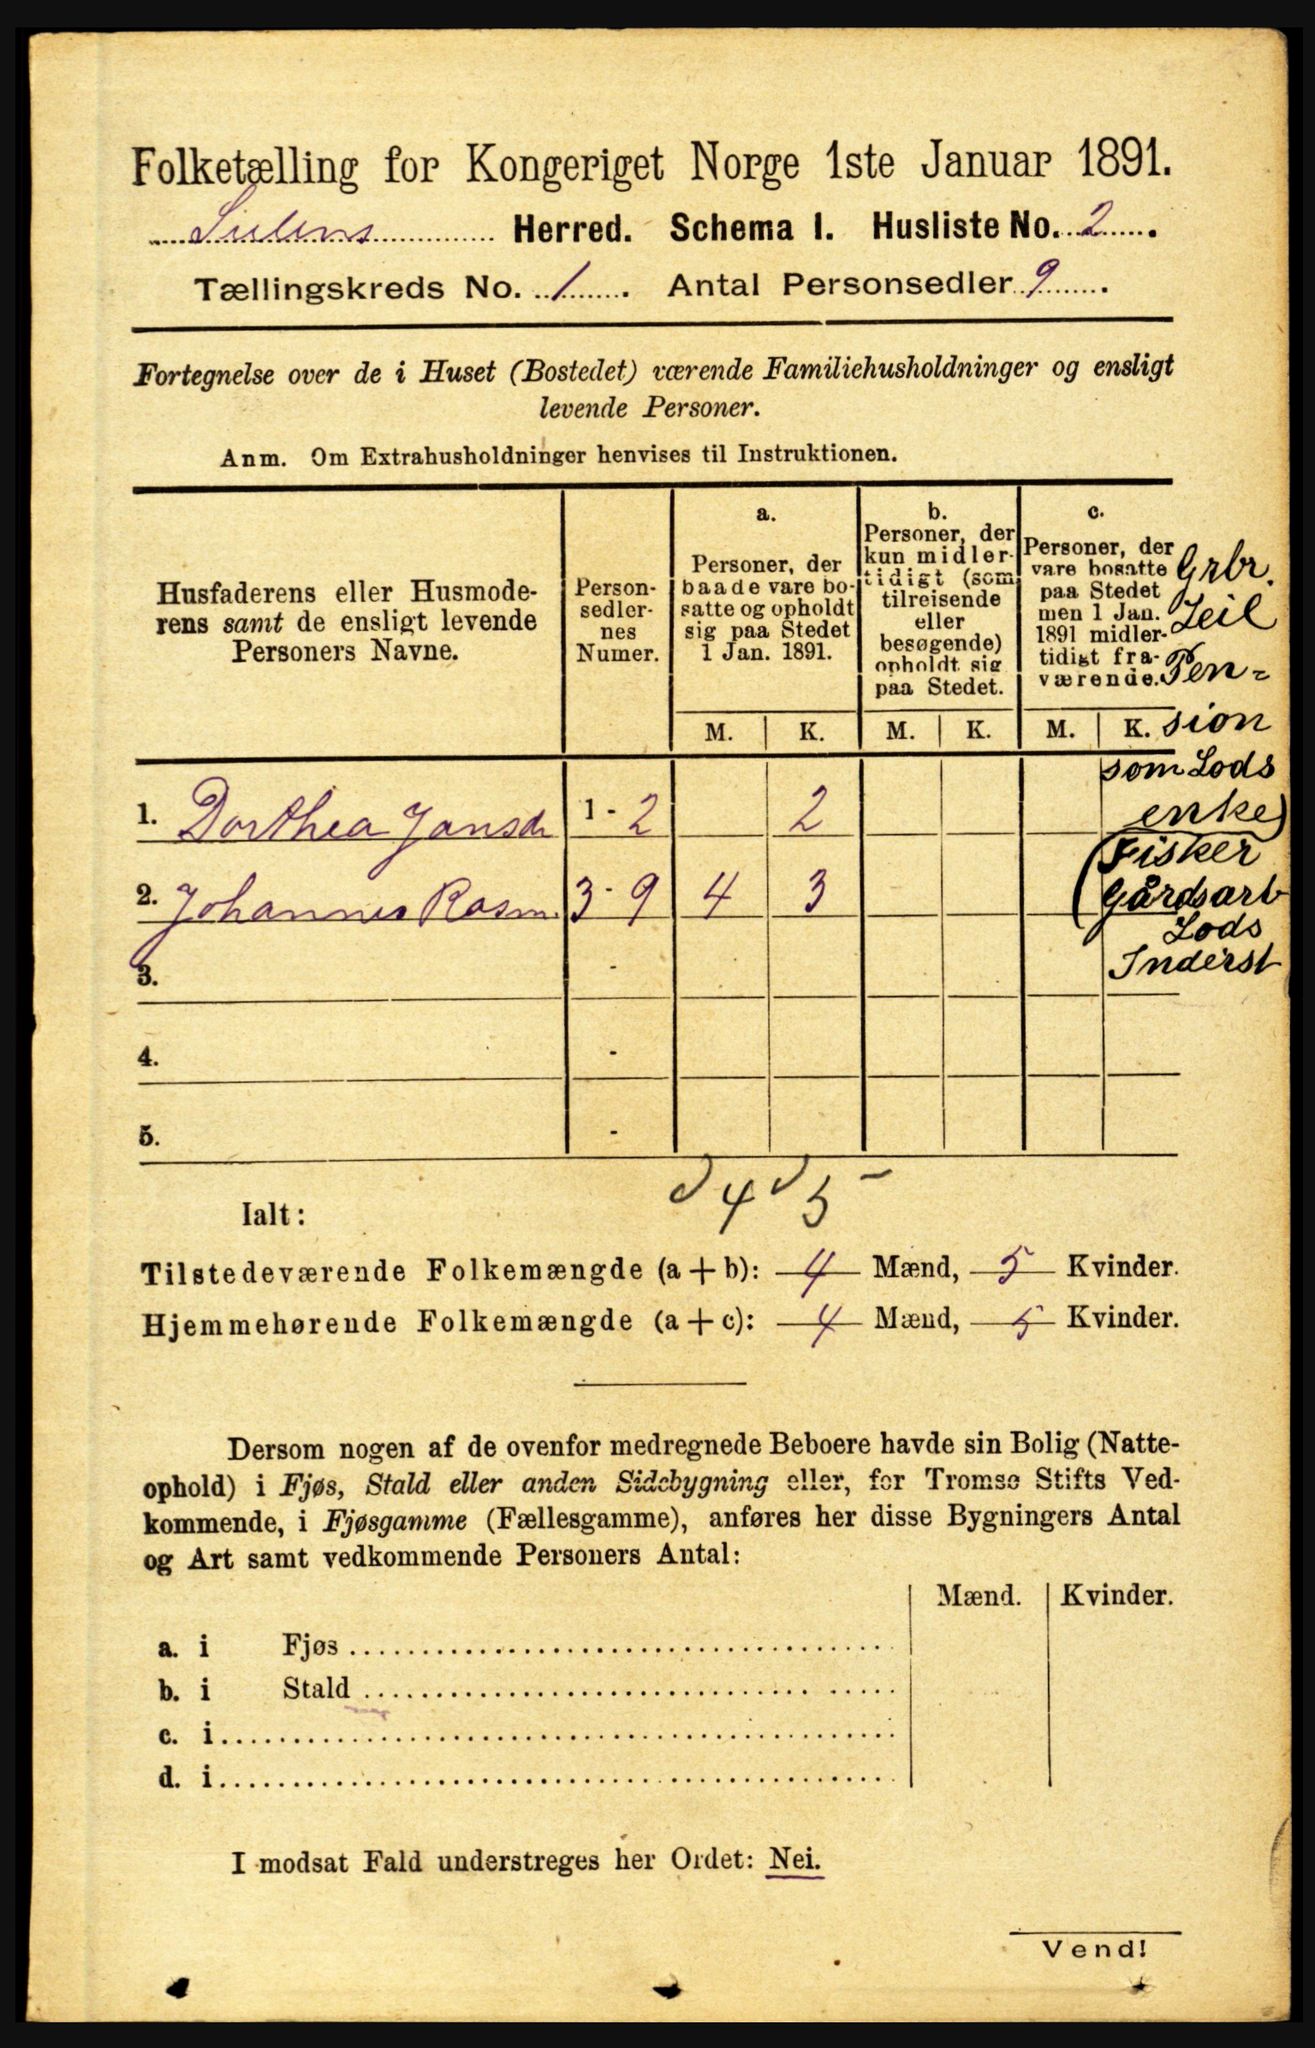 Folketælling for Kongeriget Norge 1ste Januar 1891.
Sulens Herred. Schema I. Husliste No. 2.
Tællingskreds No. 1. Antal Personsedler 9.
Fortegnelse over de i Huset (Bostedet) værende Familiehusholdninger og ensligt
levende Personer.
Anm. Om Extrahusholdninger henvises til Instruktionen.
Husfaderens eller Husmode-
rens samt de ensligt levende
Personers Navne.
Person-
sedler-
nes
Numer.
a.
Personer, der
baade vare bo-
satte og opholdt
sig paa Stedet
1 Jan. 1891.
b.
Personer, der
kun midler-
tidigt (som
tilreisende
eller
besøgende)
opholdt sig
paa Stedet.
c.
Personer, der
vare bosatte
paa Stedet
men 1 Jan.
1891 midler-
tidigt fra-
værende.
M. K. M. K. M. K.
Grbr.
Pen-
sion
som Lods
enke)
(Fisker
Gårdsarb
Lods
Inderst
1. Dorthea Jansd 1 - 2 2
2. Johannes Rasm. 3 - 9 4 3
3. -
4. -
5. -
4 5
Ialt:
Tilstedeværende Folkemængde (a + b): 4 Mænd, 5 Kvinder.
Hjemmehørende Folkemængde (a + c): 4 Mænd, 5 Kvinder.
Dersom nogen af de ovenfor medregnede Beboere havde sin Bolig (Natte-
ophold) i Fjøs, Stald eller anden Sidebygning eller, for Tromsø Stifts Ved-
kommende, i Fjøsgamme (Fællesgamme), anføres her disse Bygningers Antal
og Art samt vedkommende Personers Antal:
Mænd. Kvinder.
a. i Fjøs
b. i Stald
c. i
d. i
I modsat Fald understreges her Ordet: Nei.
Vend!